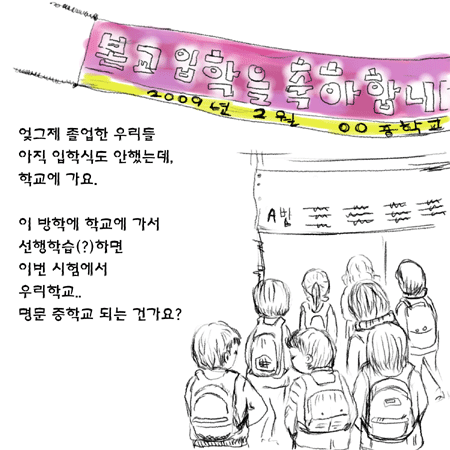 본교 입학을 축하합니
2009년 2월 00 중학교
엊그제 졸업한 우리들
아직 입학식도 안했는데,
학교에 가요.
이 방학에 학교에 가서
선행학습(?)하면
이번 시험에서
우리학교..
명문 중학교 되는 건가요?
A반